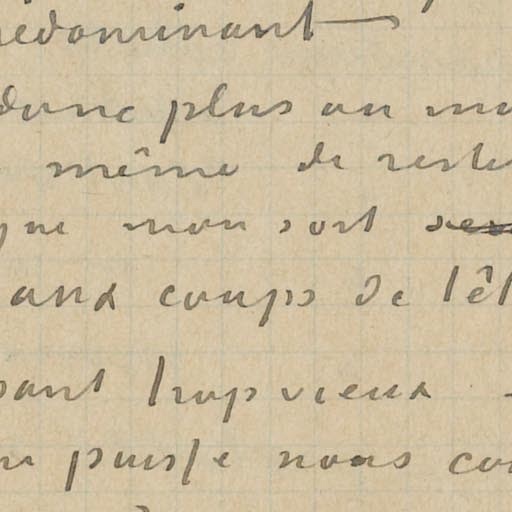 redominant
donc plus ou mo
même de reste
que mon sort ser
aux coups de têt
sant trop vieux -
n puisse nous cou